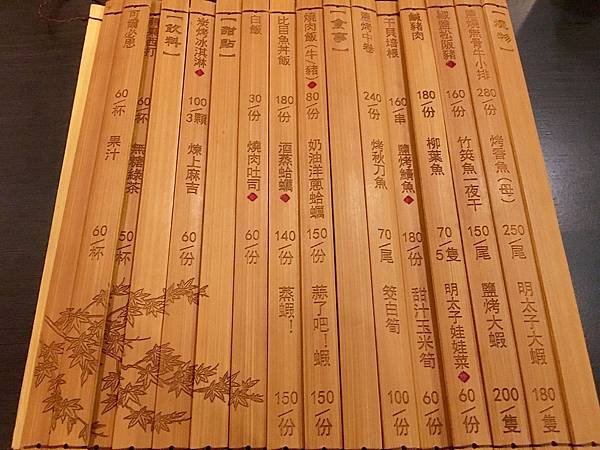 【燒物】
鹽燒無骨牛小排 280/份 烤香魚(母) 250/尾 明太子大蝦 180/隻
椒鹽松阪豬 160/份 竹筴魚一夜干 150/尾 鹽烤大蝦 200/隻
鹹豬肉 180/份 柳葉魚 70/5隻 明太子娃娃菜 60/份
干貝培根 160/串 鹽烤鯖魚 180/份 甜汁玉米筍 60/份
鹽烤中卷 240/份 烤秋刀魚 70/尾 筊白筍 100/份
【食事】
燒肉飯(牛/豬) 80/份 奶油洋蔥蛤蠣 150/份 蒜了吧!蝦 150/份
比目魚丼飯 180/份 酒蒸蛤蠣 140/份 蒸蝦! 150/份
白飯 30/份 燒肉吐司 60/份
【甜點】
炭烤冰淇淋 100/3顆 煉上麻吉 60/份
【飲料】
蘋果西打 60/杯 無糖綠茶 50/杯
可爾必思 60/杯 果汁 60/杯